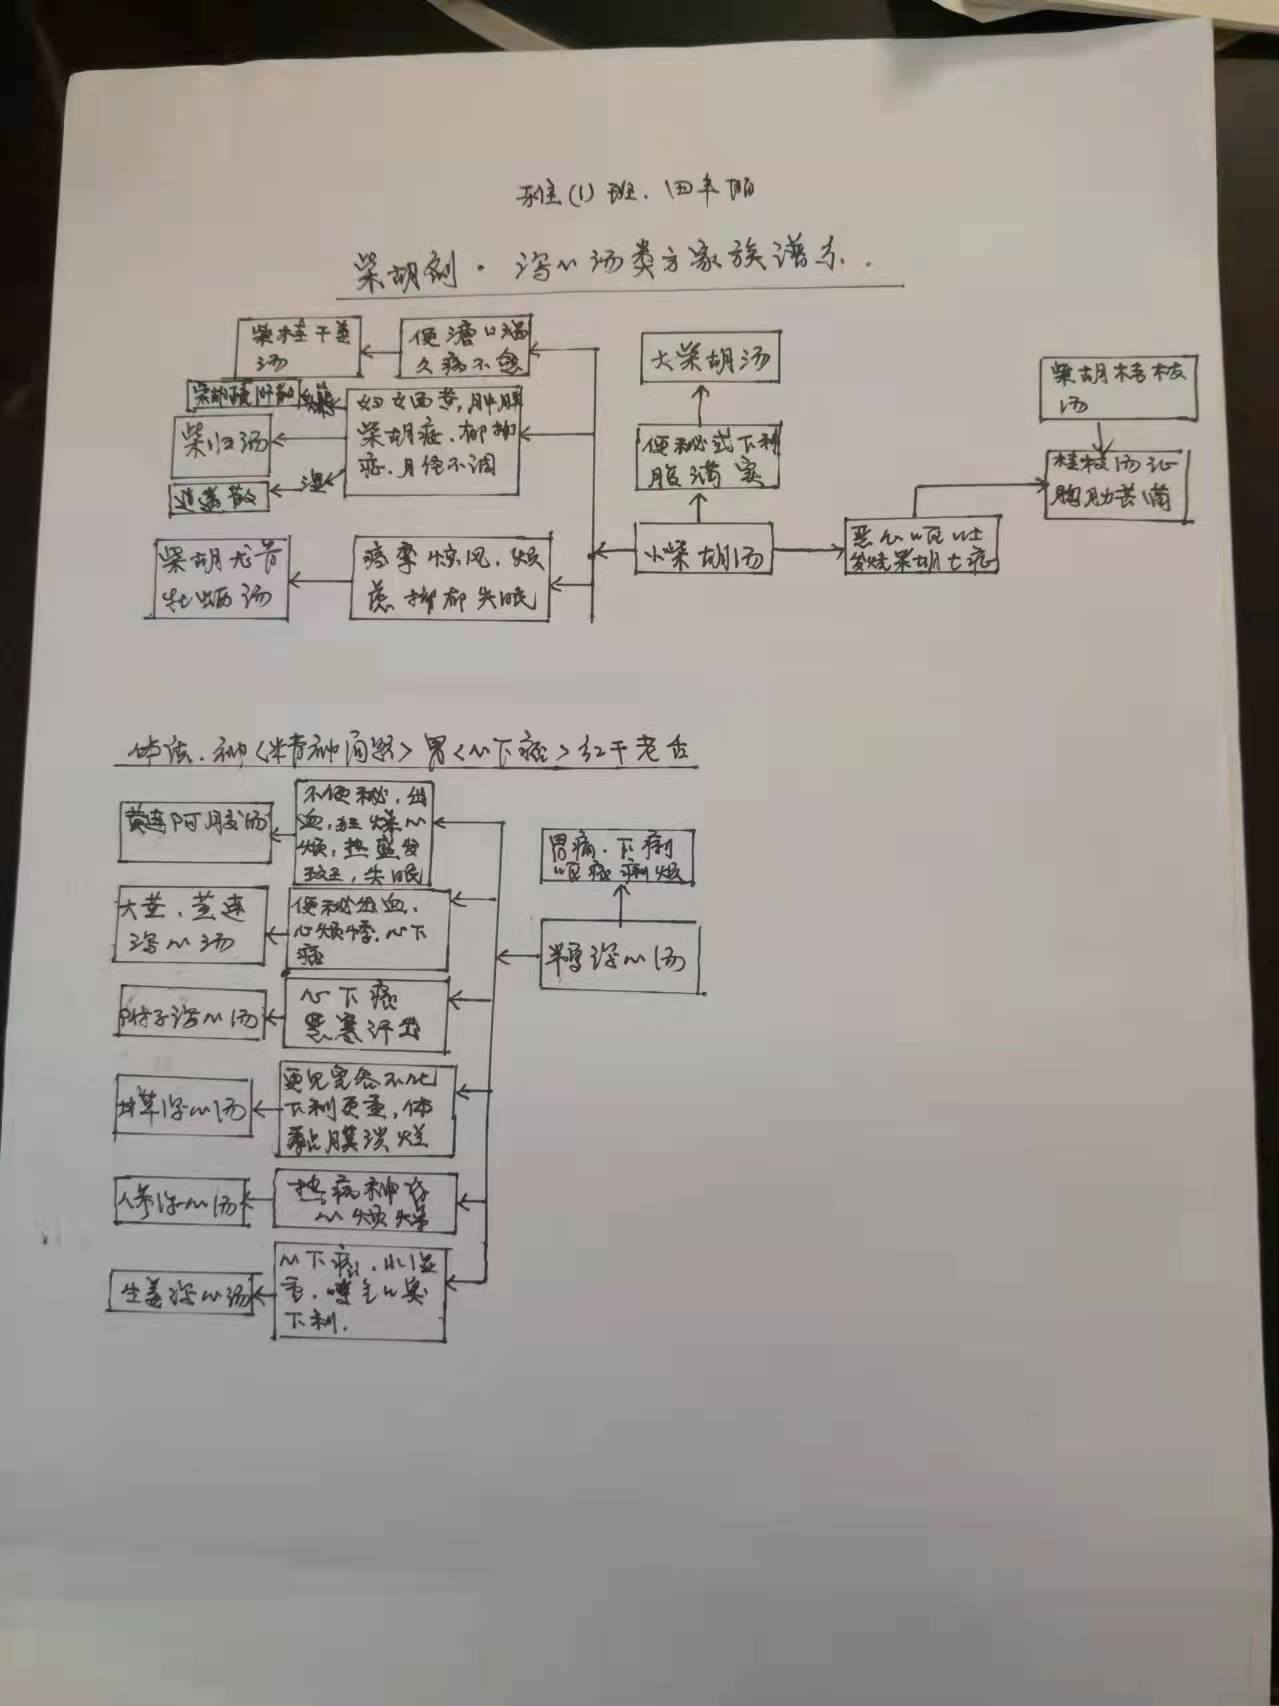 (1)班.
柴胡剂·泻心汤类方家族谱系.
柴桂干姜
汤
便溏口渴
久病不愈
大柴胡汤
柴胡桂枝
汤
柴归汤
妇女面黄,
柴胡症.郁抑
症.月经不调
逍遥散
湿
便秘或下利
腹满实
桂枝汤证
胸胁苦满
柴胡龙骨
牡蛎汤
惊风.烦
虑抑郁失眠
小柴胡汤
恶心呕吐
发烧柴胡七症
体法.神<精神问题>胃<心下痞>红干老舌
黄连阿胶汤
不便秘,出
血,狂燥心
烦,热盛发
失眠
胃痛.下痢
大黄.黄连
泻心汤
便秘出血.
心烦悸.心下
痞
半夏泻心汤
附子泻心汤
心下痞
恶寒汗出
甘草泻心汤
更见完谷不化
下利更重,体
黏膜溃烂
人参泻心汤
热病神昏
心烦燥
生姜泻心汤
心下痞.水湿
下利.